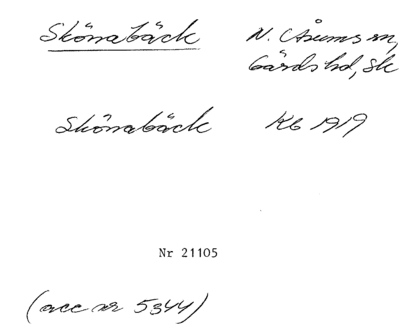 Skönabäck N. Åsums sn,
Gärds hd, Sk
Skönabäck Kb 1919
Nr 21105
(acc nr 5344)